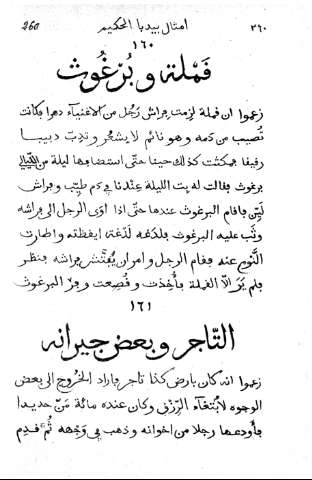 ٢٦٠ امثال بيدبا الحكيم 260
١٦٠
قملة وبرغوث
زعموا ان قملة لزمت فراش رَجُل من الاغنياء دهرا فكانت
تُصيب من دَمه وهو نائم لا يشعُر وتَدِبّ دبيبا
رفيفا فمكثت كذلك حينا حتّى استضافها ليلة من اللّيالي
برغوث فقالت له بِت الليلة عِندنا في دَم طيّب وفراش
ليّن فاقام البرغوث عندها حتى اذا اوى الرجل الى فراشه
وثَب عليه البرغوث فلدغه لَدغة ايقظته واطارت
النّوم عنه فقام الرجل وامر ان يُفتَّش فراشه فنظر
فلم يَرَ الّا القملة فأُخذت وقُصِعت وفرّ البرغوث
١٦١
التّاجر وبعض جيرانه
زعموا انه كان بارض كذا تاجر فاراد الخُروج الى بعض
الوجوه لِابْتغاء الرّزق وكان عنده مائة مَنّ حديدا
فأودعها رجلا من اخوانه وذهب في وَجْهه ثُمّ قدِم